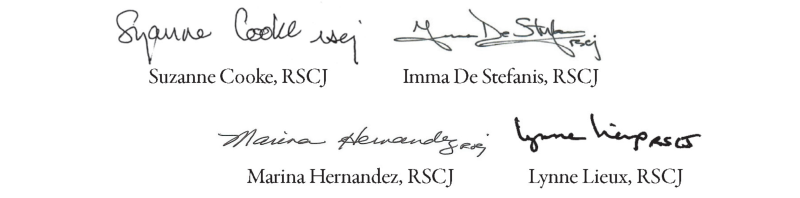 Suzanne Cooke rscj Imma De Stefanis rscj
Suzanne Cooke, RSCJ Imma De Stefanis, RSCJ
Marina Hernandez rscj Lynne Lieux RSCJ
Marina Hernandez, RSCJ Lynne Lieux, RSCJ